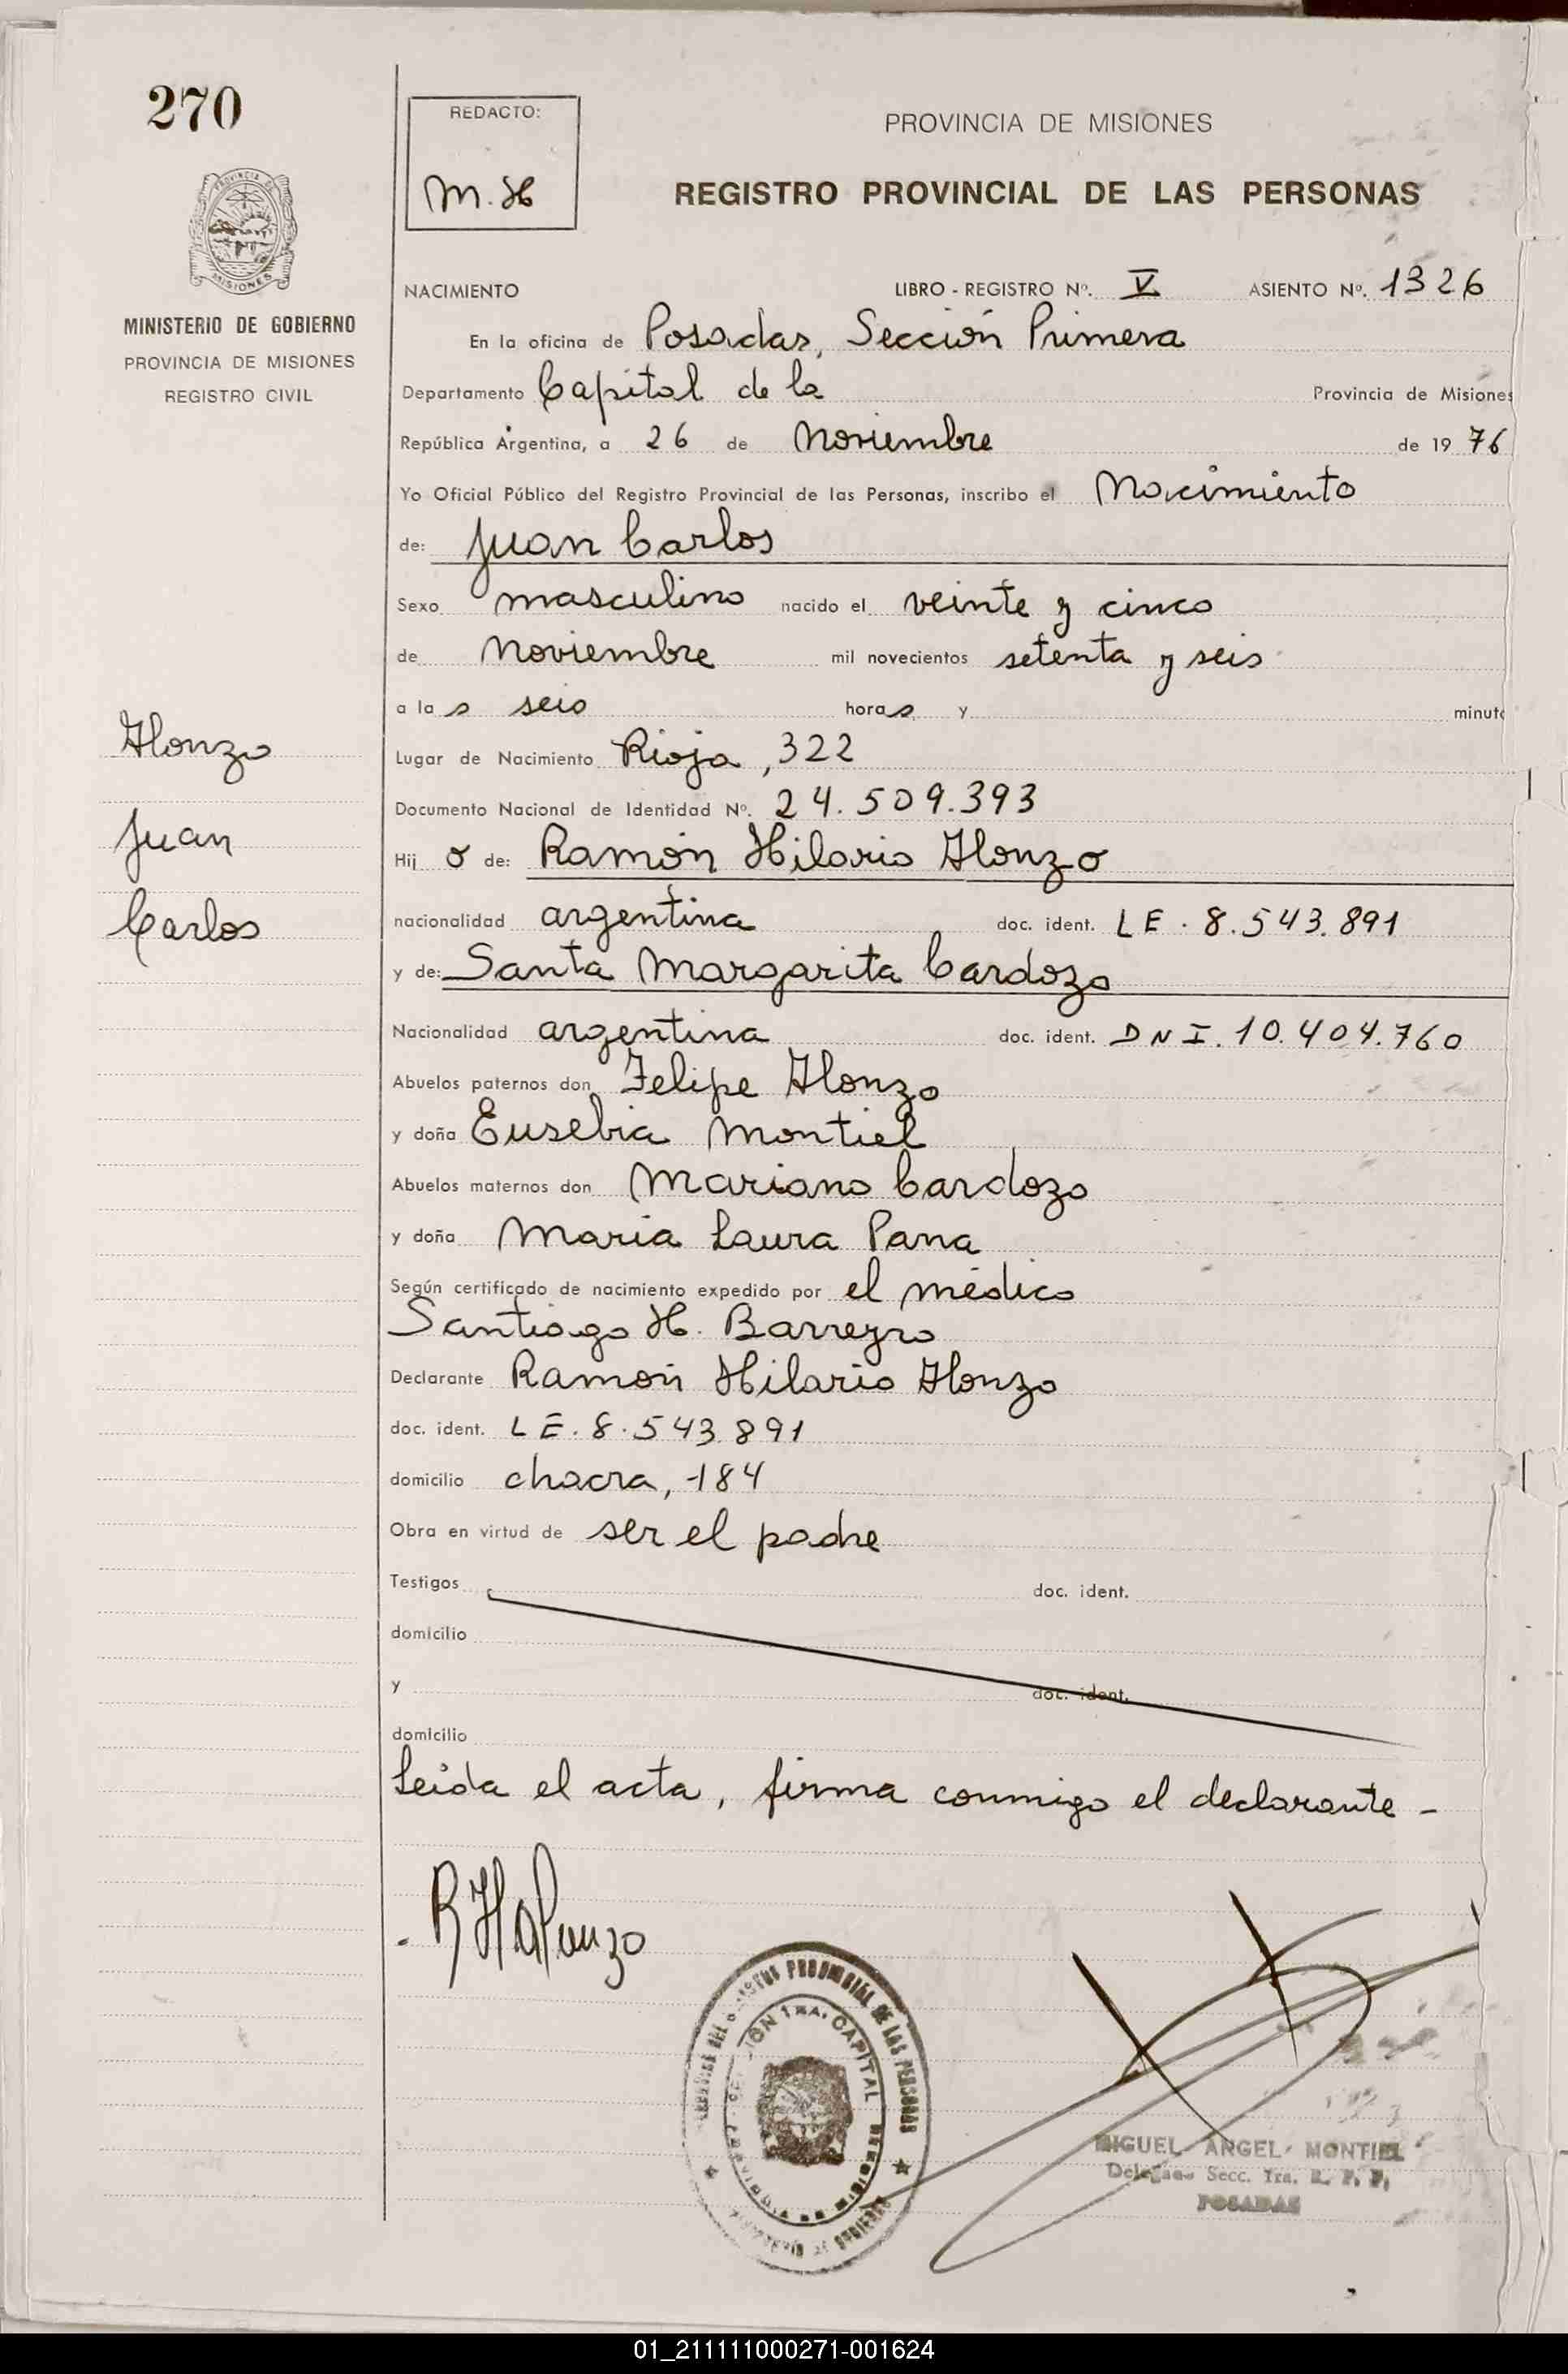 270
REDACTO:
M. H
PROVINCIA DE MISIONES
REGISTRO PROVINCIAL DE LAS PERSONAS
PROVINCIA DE
MISIONES
MINISTERIO DE GOBIERNO
PROVINCIA DE MISIONES
REGISTRO CIVIL
NACIMIENTO LIBRO - REGISTRO Nº. V ASIENTO Nº. 1326
En la oficina de Posadas, Sección Primera
Departamento Capital de la Provincia de Misiones
República Argentina, a 26 de Noviembre de 19 76
Yo Oficial Público del Registro Provincial de las Personas, inscribo el Nacimiento
de: Juan Carlos
Sexo masculino nacido el veinte y cinco
de Noviembre mil novecientos setenta y seis
a la s seis hora s y minuto
Alonzo
Juan
Carlos
Lugar de Nacimiento Rioja, 322
Documento Nacional de Identidad Nº. 24.509.393
Hij o de: Ramón Hilario Alonzo
nacionalidad argentina doc. ident. LE. 8.543.891
y de: Santa Margarita Cardozo
Nacionalidad argentina doc. ident. DNI. 10.404.760
Abuelos paternos don Felipe Alonzo
y doña Eusebia Montiel
Abuelos maternos don Mariano Cardozo
y doña Maria Laura Pana
Según certificado de nacimiento expedido por el médico
Santiago H. Barreyro
Declarante Ramón Hilario Alonzo
doc. ident. LE. 8.543.891
domicilio chacra, 184
Obra en virtud de ser el padre
Testigos doc. ident.
domicilio
y doc. ident.
domicilio
Leida el acta, firma conmigo el declarante -
RHAlonzo
PROVINCIAL DE LAS PERSONAS
1RA. CAPITAL
MIGUEL ANGEL MONTIEL
Delegado Secc. 1ra. R. P. P.
POSADAS
01_211111000271-001624